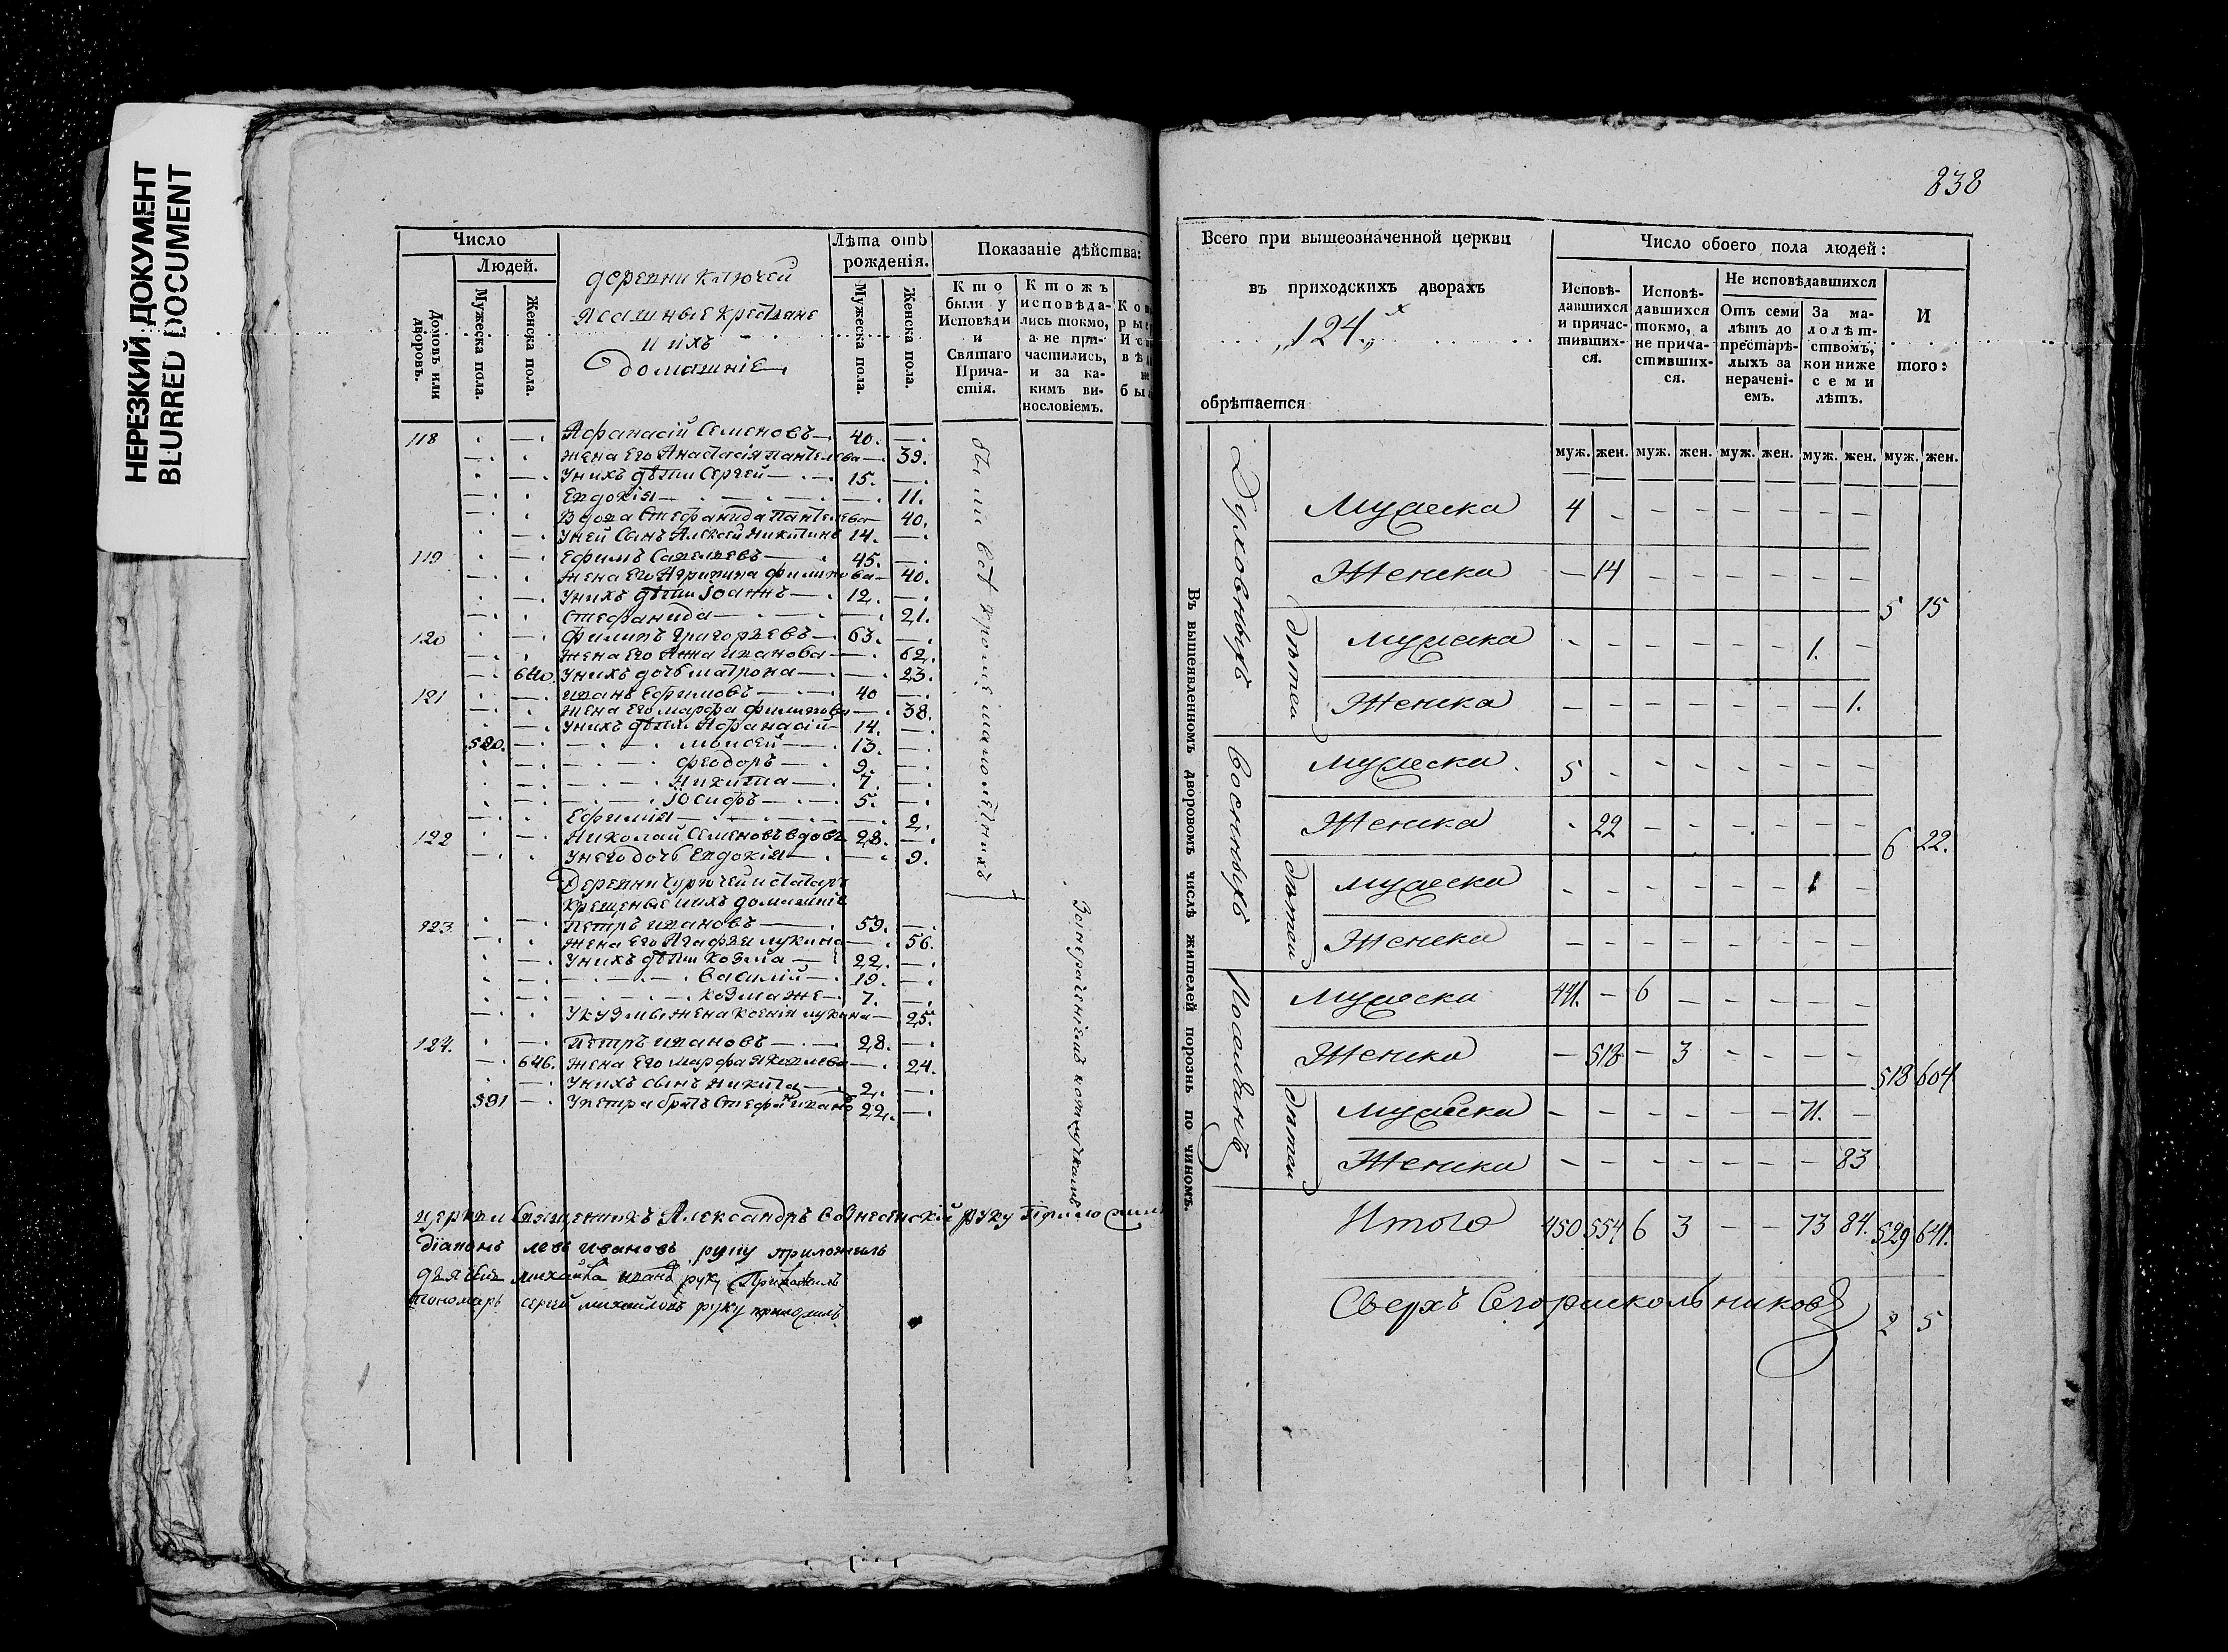 НЕРЕЗКИЙ ДОКУМЕНТ
BLURRED DOCUMENT
Число
Людей.
Домовъ или дворовъ.
Мужеска пола.
Женска пола.
деревни Ключей
ясашные крестяне
и ихъ
домашніе
Лѣта отъ рожденія.
Мужеска пола.
Женска пола.
Показаніе дѣйства:
Кто были у Исповѣди и Святаго Причастія.
Ктожъ исповѣдались токмо, а не причастились, и за какимъ винословіемъ.
118 Афанасій Семеновъ 40.
жена его Анастасія Пантелева 39.
У нихъ дѣти Сергей 15.
Евдокія 11.
Вдова Стефанида Пантелева 40.
У ней Сынъ Алексей Никитинъ 14.
119 Ефимъ Савельевъ 45.
жена его Агрипина Филипова 40.
У нихъ дѣти Іоаннъ 12.
Стефанида 21.
120 Филипъ Григорьевъ 63.
жена его Анна Иванова 62.
640. У нихъ дочь Матрона 23.
121 Иванъ Ефимовъ 40
жена его Марфа Филипова 38.
У нихъ дѣти Афанасій 14.
520. Моисей 13.
Феодоръ 9.
Никита 7.
Іосифъ 5.
Ефимия 2.
122 Николай Семеновъ вдовъ 28.
У него дочь Евдокія 9.
Деревни
крещеные и ихъ домашніе
123 Петръ Ивановъ 59.
жена его Агафья Лукина 56.
У нихъ дѣти Козма 22.
Василій 19.
Козма же 7.
У Кузмы жена Ксенія Лукина 25.
124. Петръ Ивановъ 28.
646. жена его Марфа Яковлева 24.
У нихъ сынъ Никита 2.
591 У Петра братъ Стефанъ Ивановъ 22.
были всѣ кроме малолетнихъ
церкви Священникъ Александръ Вознесенскій руку приложилъ
діаконъ Левъ Ивановъ руку приложилъ
Михайла Иванъ руку приложилъ
пономарь Сергей Михайловъ руку приложилъ
838
Всего при вышеозначенной церкви
въ приходскихъ дворахъ
„124„
обрѣтается
Число обоего пола людей:
Исповѣдавшихся и причастившихся.
Исповѣдавшихся токмо, а не причастившихся.
Не исповѣдавшихся
Отъ семи лѣтъ до престарѣлыхъ за нерачені-емъ.
За малолѣтствомъ, кои ниже семи лѣтъ.
И того:
муж. жен. муж. жен. муж. жен. муж. жен. муж. жен.
Въ вышеявленномъ дворовомъ числѣ жителей порознь по чиномъ.
Духовныхъ
Мужеска 4 – – – – – – –
Женска – 14 – – – – – –
5 15
дѣтей
Мужеска – – – – – – 1. –
Женска – – – – – – – 1.
Военныхъ
Мужеска 5 – – – – – – –
Женска – 22 – – – – – –
6 22.
дѣтей
Мужеска – – – – – – 1 –
Женска – – – – – – – –
Поселянъ
Мужеска 441. – 6 – – – – –
Женска – 518 – 3 – – – –
518 604
дѣтей
Мужеска – – – – – – 71. –
Женска – – – – – – – 83
Итого 450 554 6 3 – – 73 84. 529 641.
Сверхъ Сего раскольниковъ 2 5